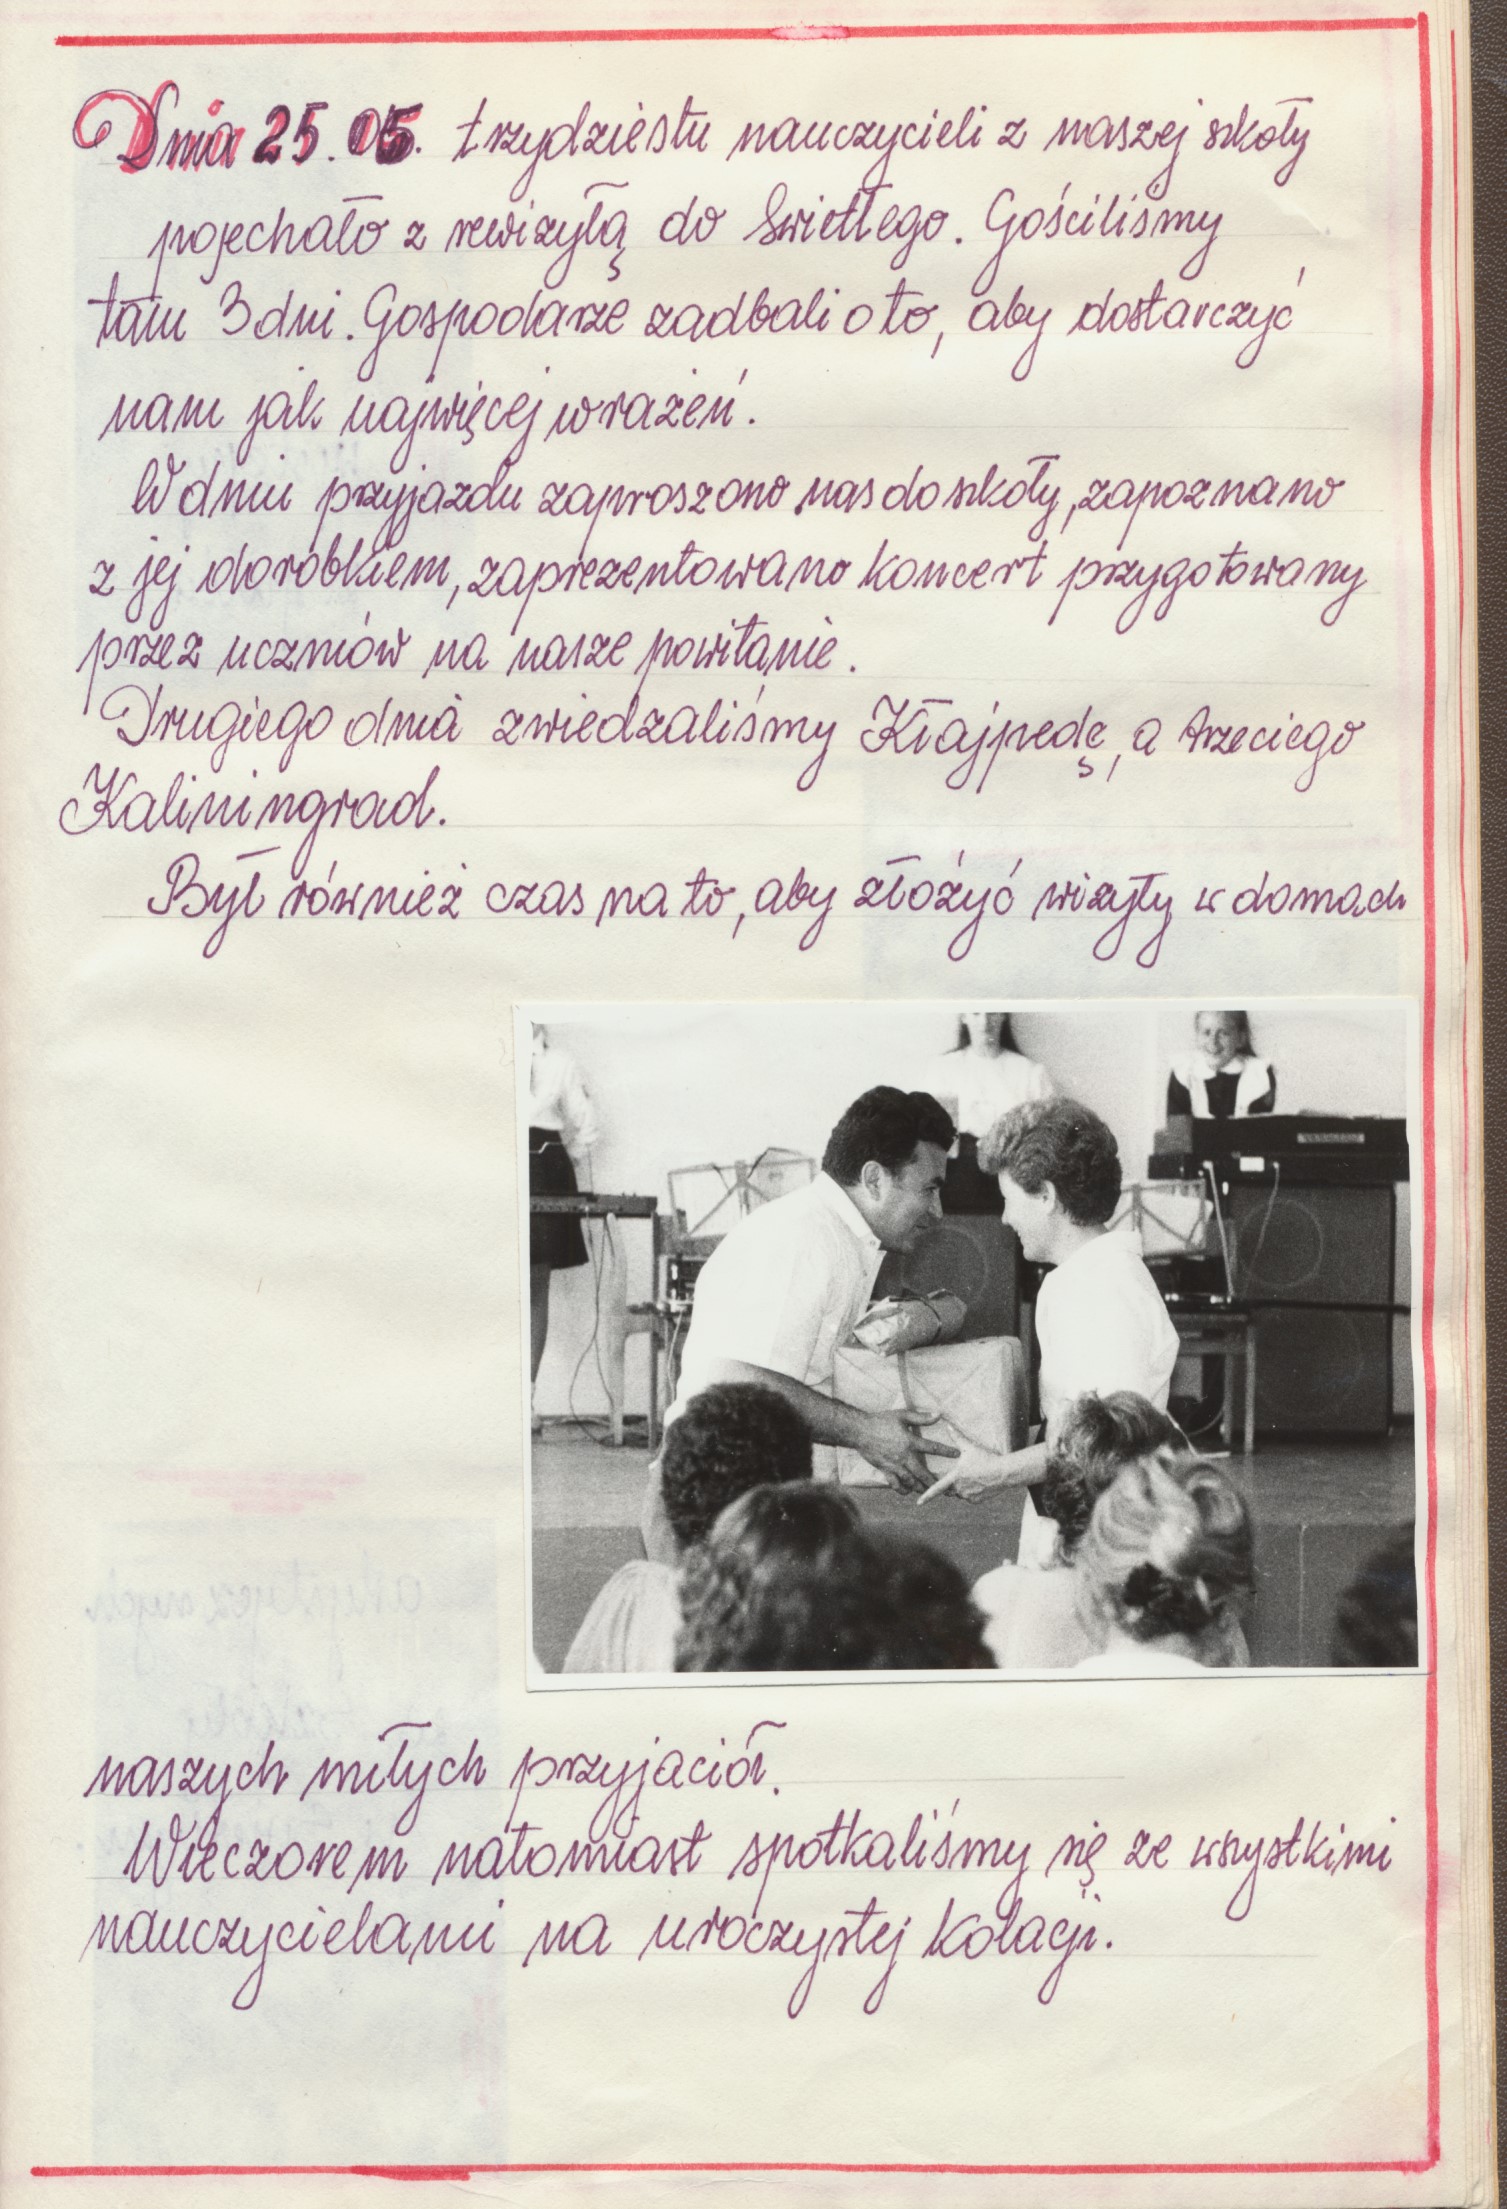 Dnia 25.05. trzydziestu nauczycieli z naszej szkoły
pojechało z rewizytą do Swietłego. Gościliśmy
tam 3 dni. Gospodarze zadbali o to, aby dostarczyć
nam jak najwięcej wrażeń.
W dniu przyjazdu zaproszono nas do szkoły, zapoznano
z jej dorobkiem, zaprezentowano koncert przygotowany
przez uczniów na nasze powitanie.
Drugiego dnia zwiedzaliśmy Kłajpedę, a trzeciego
Kaliningrad.
Był również czas na to, aby złożyć wizyty w domach
naszych miłych przyjaciół.
Wieczorem natomiast spotkaliśmy się ze wszystkimi
nauczycielami na uroczystej kolacji.